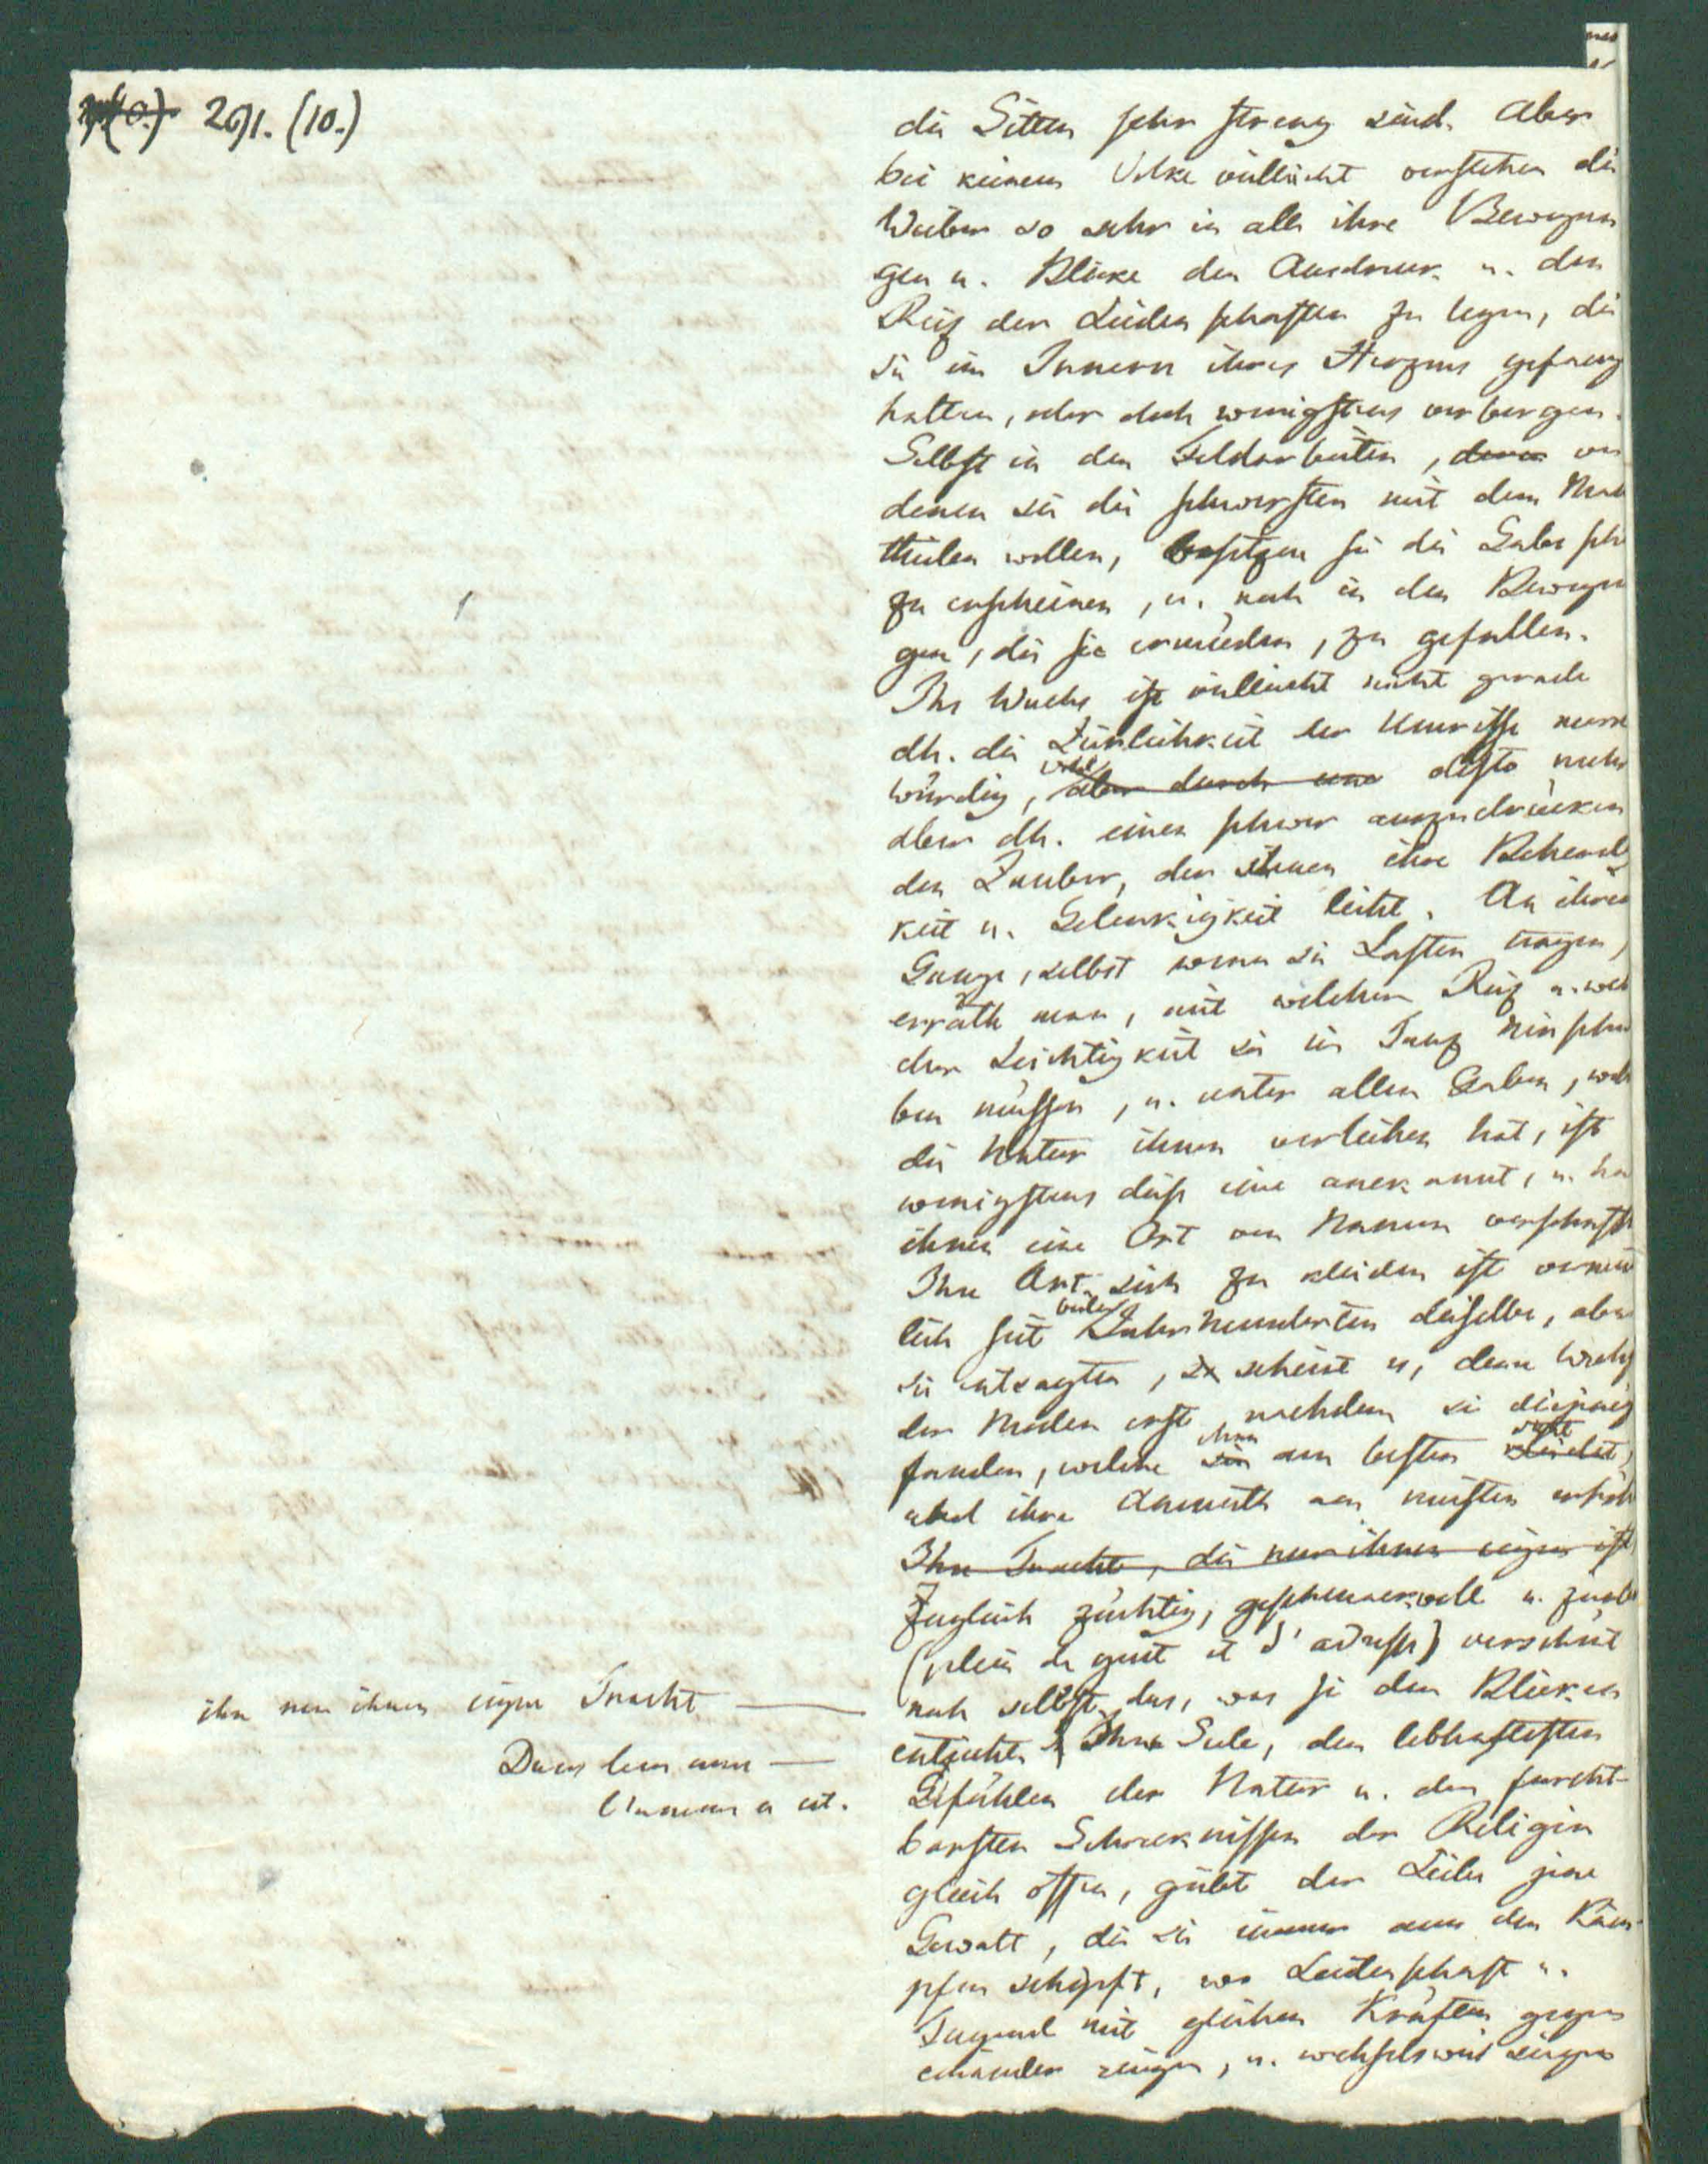 291. (10.)
die Sitten sehr streng sind. Aber
bei keinem Volke vielleicht verstehen die
Weiber so sehr in alle ihre Bewegun
gen u. Blicke den Ausdruck u. den
Reiz der Leidenschaften zu legen, die
sie im Innern ihres Herzens gefang
halten, oder doch wenigstens verbergen.
Selbst in den Feldarbeiten, deren von
denen sie die schwersten mit dem Man
theilen wollen, besitzen sie die Gabe sch
zu erscheinen, u. noch in den Bewegun
gen, die sie ermüden, zu gefallen.
Ihr Wuchs ist vielleicht nicht gerade
dh. die Zierlichkeit der Umrisse merk
würdig, aber durch eine desto mehr
aber dh. einen schwer auszudrücken
den Zauber, den ihnen ihre Behend
keit u. Gelenkigkeit leiht. An ihrem
Gange, selbst wenn sie Lasten tragen,
erräth man, mit welchem Reiz u. wel
cher Leichtigkeit sie im Tanz hinschwe
ben müssen, u. unter allen Gaben, welche
die Natur ihnen verliehen hat, ist
wenigstens diese eine anerkannt, u. ha
ihnen eine Art von Namen verschafft
Ihre Art sich zu kleiden ist vermut
lich seit vielen Jahrhunderten dieselbe, aber
sie entsagten, scheint es, dem Wechs
der Moden erst, nachdem sie diejenig
fanden, welche ihnen sie am besten steht kleidet,
und ihre Anmuth am meisten erhöht
Ihre Tracht, die nur ihnen eigen ist
Zugleich züchtig, geschmackvoll u.
(plein de gout et d'adresse) verschönt
ihre nur ihnen eigne Tracht —
noch selbst das, was sie den Blicken
entzieht. Ihre Seele, den lebhaftesten
Dans leur ame —
Gefühlen der Natur u. den furcht-
l'amour a est.
barsten Schrecknissen der Religion
gleich offen, giebt der Liebe jene
Gewalt, die sie immer aus den Käm-
pfen schöpft, wo Leidenschaft u.
Tugend mit gleichen Kräften gegen
einander ringen, u. wechselsweise siegen